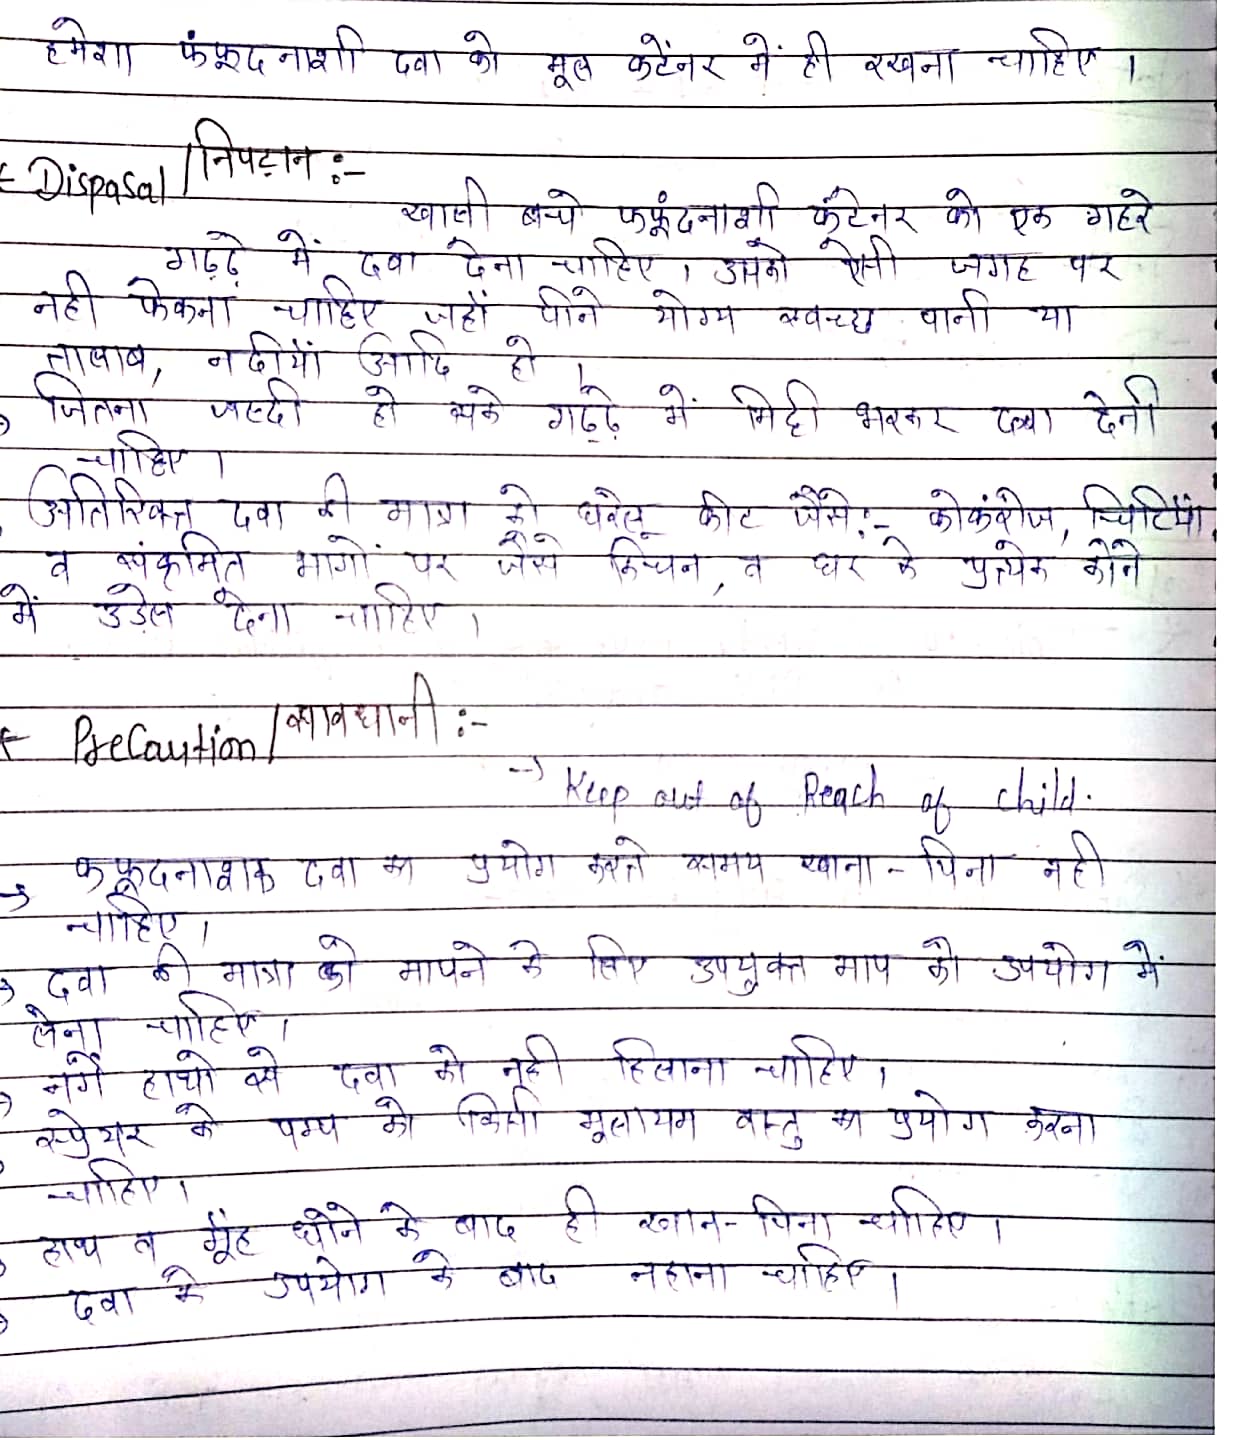 हमेशा फंफूदनाशी दवा को मूल कटेंनर में ही रखना चाहिए।
Dispasal/निपटान :-
खाली बचे फफूंदनाशी कंटेनर को एक गहरे
गढ़्ढ़े में दबा देना चाहिए। उसको ऐसी जगह पर
नही फेकना चाहिए जहाँ पीने योग्य स्वच्छ पानी या
तालाब, नदीयाँ आदि हो।
जितना जल्दी हो सके गढ़्ढ़े में मिट्टी भरकर दबा देनी
चाहिए।
अतिरिक्त दवा की मात्रा को घरेलू कीट जैसे:- कोकंरोज, चिटियाँ,
व संक्रमित भागों पर जैसे किचन, व घर के प्रत्येक कोने
में उड़ेल देना चाहिए।
Precaution/सावधानी :-
→ Keep out of Reach of child.
→ फफूदनाशक दवा का प्रयोग करते समय खाना-पिना नही
चाहिए।
→ दवा की मात्रा को मापने के लिए उपयुक्त माप को उपयोग में
लेना चाहिए।
→ नगें हाथो से दवा को नही हिलाना चाहिए।
स्प्रेयर के पम्प को किसी मूलायम वस्तु का प्रयोग करना
चाहिए।
हाथ व मूँह धोने के बाद ही खान-पिना चाहिए।
दवा के उपयोग के बाद नहाना चाहिए।